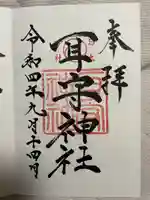 奉拝
耳守神社
令和四年九月二十四日